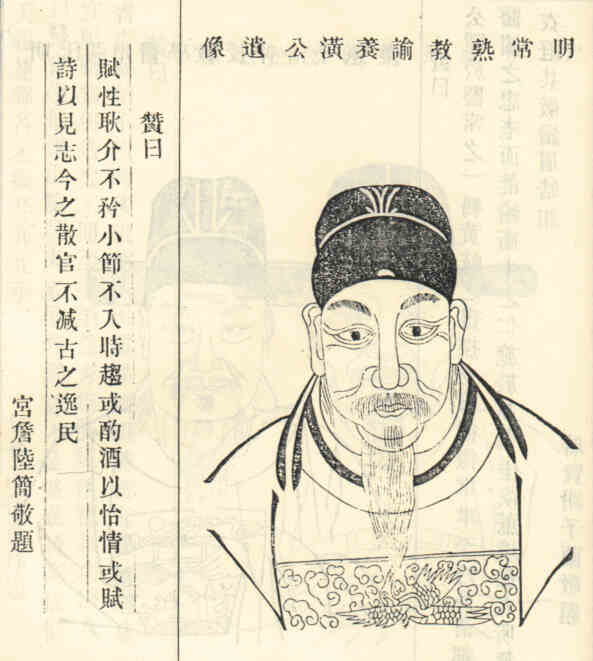 明常熟教諭養潢公遺像
贊曰
賦性耿介不矜小節不入時趨或酌酒以怡情或賦
詩以見志今之散官不减古之逸民
宮詹陸簡敬題